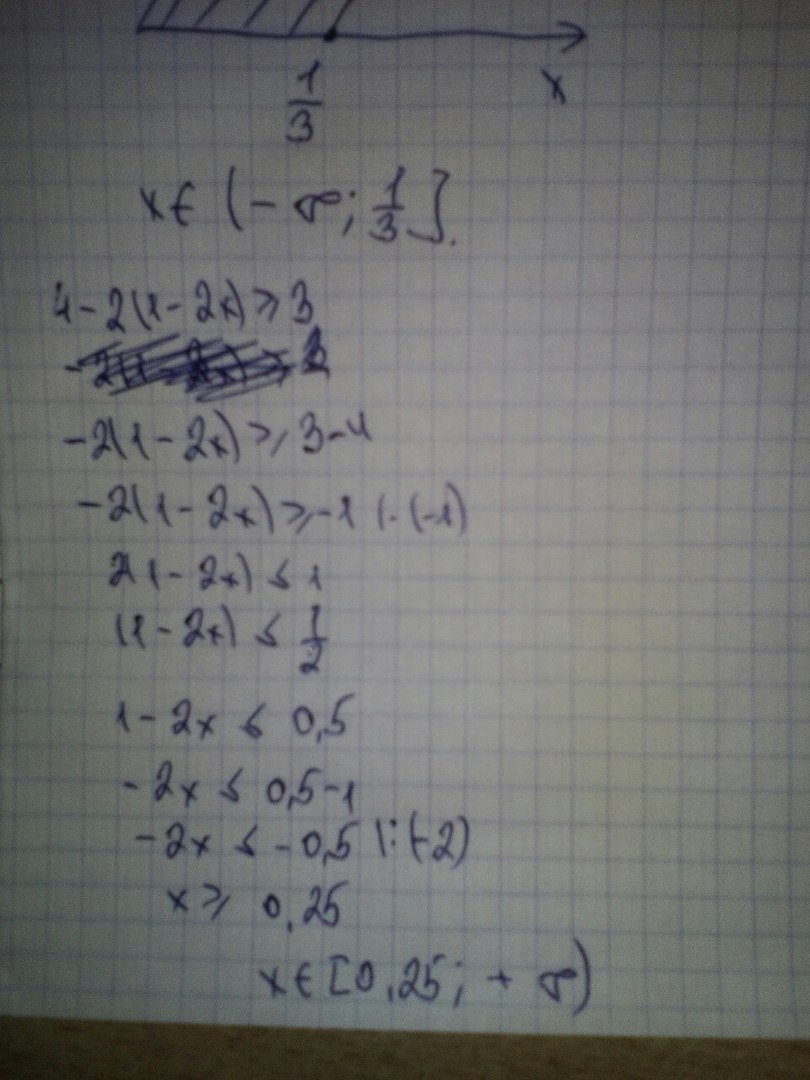 1/3 x
x ∈ (-∞; 1/3].
4-2(1-2x)≥3
-2(1-2x)≥3-4
-2(1-2x)≥-1 |·(-1)
2(1-2x)≤1
(1-2x)≤1/2
1-2x≤0,5
-2x≤0,5-1
-2x≤-0,5 |:(-2)
x≥0,25
x∈[0,25;+∞)